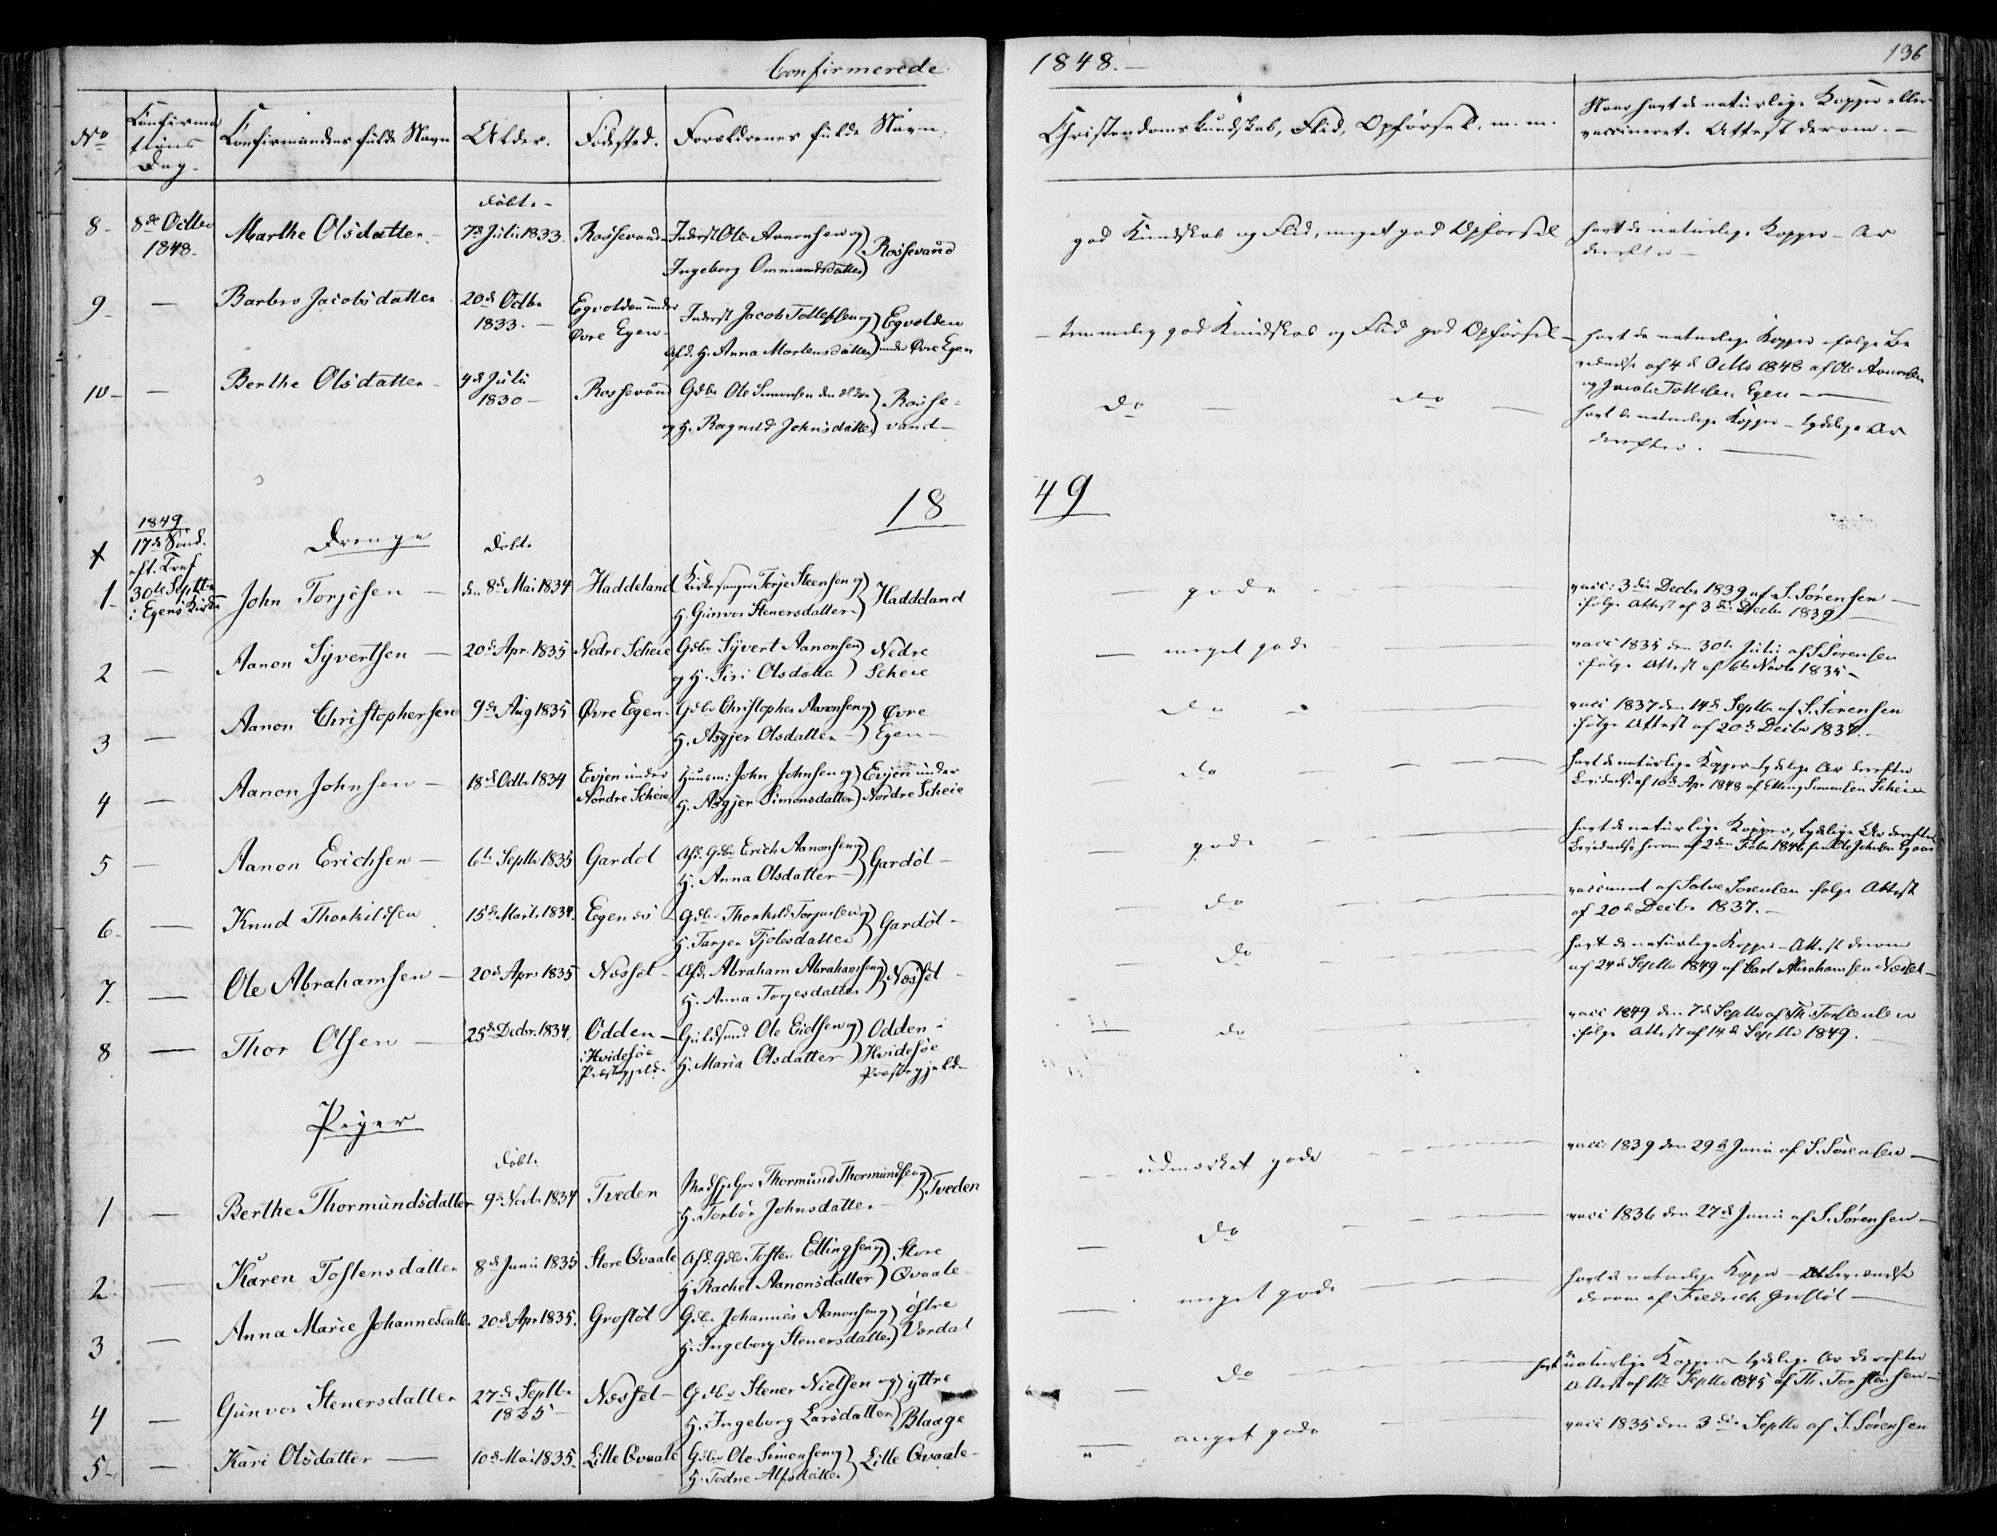 Confirmerede 1848.-
136
No
Confirma
tions
Dag.
Confirmandens fulde Navn
Alder.
Fødested.
Forældrenes fulde Navn.
Christendomskundskab, Flid, Opførsel, m. m.
Naar havt de naturlige Kopper eller
vaccineret. Attest derom.-
døbt.-
8- 8de Octbr Marthe Olsdatter- 7de Julii 1833. Inderst Ole Aanonsen og
1848- Ingeborg Ommundsdatter) Rossevand
god Kundskab og Flid, meget god Opførsel
havt de naturlige Kopper - Ar
derefter-
9- - Barbro Jacobsdatter 20de Octbr Egvolden under Inderst Jacob Tollefsen og) Egvolden
1833.- Øvre Egen- Afd. H. Anna Mortensdatter) under Øvre Egen
- temmelig god Kundskab og Flid god Opførsel-
havt de naturlige Kopper ifølge Be
af 4de Octbr 1848 af Ole Aanonsen
og Jacob Tollefsen Egen-
10- - Berthe Olsdatter- 4de Julii Rossevand Gdbr Ole Simonsen den ældre) Rosse=
1830- og H. Ragnild Johnsdatter) vand-
do - do -
havt de naturlige Kopper - tydelige Ar
derefter.
1849
1849
17de Sønd.
eft. Tref
30te Septbr
i Egens Kirke
Drenge
Døbt.
1. John Torjesen- den 8de Mai 1834 Haddeland Kirkesanger Torje Steensen og) Haddeland
H. Gunvor Stenersdatter-
- gode
vacc: 3die Decbr 1839 af S. Sørensen-
ifølge Attest af 3die Decbr 1839.-
2 - Aanon Sÿvertsen- 20de Apr. 1835 Nedre Scheie Gdbr Sÿvert Aanonsen) Nedre
og H. Siri Olsdatter) Scheie
- meget gode
vacc 1835 den 30te Julii af S. Sørensen
ifølge Attest af 6te Novbr 1835-
3 - Aanon Christophersen 9de Aug 1835 Øvre Egen- Gdbr Christopher Aanonsen og) Øvre
H. Asgjer Olsdatter-) Egen-
do -
vacc 1837 den 14de Septbr af S. Sørensen
ifølge Attest af 20de Decbr 1837.-
4 - Aanon Johnsen- 18de Octbr 1834 Evjen under Huusm: John Johnsen og) Evjen under
Nordre Scheie H. Asgjer Simonsdatter) Nordre Scheie
- do -
havt de naturlige Kopper - tydelige Ar derefter
af 10de Apr 1848 af Elling Simonsen Scheie
5 - Aanon Erichsen- 6te Septbr 1835 Gardøl Afd. Gdbr Erich Aanonsen og) Gardøl-
H. Anna Olsdatter-
- gode -
havt de naturlige Kopper, tydelige Ar derefter
af 2den Febr 1846 Ole Johnsen
6- - Knud Thorkildsen 15de Marts 1834. Gdbr Thorkild Torjussen og) Gardøl-
H. Tarjer Tjølvsdatter
- do -
vaccineret af Salve Sørensen ifølge Attest
af 20de Decbr 1837.-
7- - Ole Abrahamsen- 20de Apr. 1835 Næsset- Afd. Abraham Abrahamsen og) Næsset-
H. Anna Torjesdatter
- do
havt de naturlige Kopper - Attest derom
af 24de Septbr 1849 af Carl Abrahamsen Næsset-
8 - Thor Olsen- 25de Decbr. 1834. Odden- Guldsmed Ole Eielsen og) Odden i
i Hvidesøe H. Maria Olsdatter) Hvidesøe
Præstegjeld. Præstegjeld-
- do
vacc 1849 den 7de Septbr af Th. Torstensen
ifølge Attest af 14de Septbr 1849.
Piger
døbt.
1 - Berthe Thormundsdatter 9de Novbr 1834 Tveden Medhjelper Thormund Thormundsen og) Tveden
H. Torbør Johnsdatter-
- udmærket gode
vacc: 1839 den 29de Junii af S. Sørensen-
2. - Karen Tostensdatter 8de Junii 1835 Store Qvaale Afd. Gdbr Tosten Ellingsen og) Store
H. Rachel Aanonsdatter) Qvaale-
- do -
vacc 1836 den 27de Junii af S. Sørensen-
3 - Anna Marie Johannesdatter 20de Apr 1835. Grostøl Gdbr Johannes Aanonsen og) østre
H. Ingeborg Stenersdatter) Verdal
- meget gode
havt de naturlige Kopper -
derom af Fredrich Grostøl-
4 - Gunvor Stenersdatter 27de Septbr Næsset- Gdbr Stener Nielsen og) ÿttre
1835- H. Ingeborg Larsdatter) Blaage
- do -
havt de naturlige Kopper - tydelige Ar derefter
Attest af 11te Septbr 1845 af Th. Torstensen-
5- - Kari Olsdatter- 10de Mai 1835. Lille Qvaale Gdbr Ole Simonsen og) Lille Qvaale-
H. Todne Alfsdatter
- meget gode
vacc 1835 den 3die Septbr af S. Sørensen